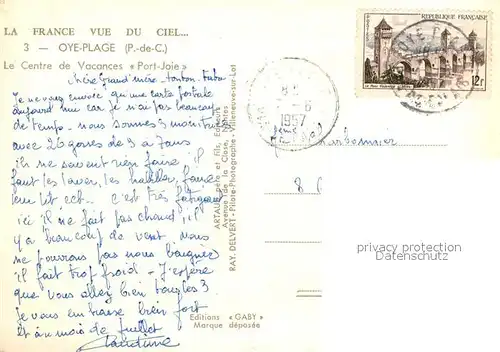 LA FRANCE VUE DU CIEL...
3 — OYE-PLAGE (P.-de-C.)
Le Centre de Vacances « Port-Joie »
Chère Grand'mère - tonton -
Je ne vous envoie qu'une carte postale
aujourd'hui car je n'ai pas beaucoup
de temps - nous sommes 3 monitrices
avec 26 gosses de 3 a 5 ans
ils ne savent rien faire il
faut les laver, les habiller, faire
leur lit ect... c'est très fatigant
ici il ne fait pas chaud, il
y a beaucoup de vent, nous
ne pouvons pas nous baigner
il fait trop froid - J'espère
que vous allez bien tous les 3
Je vous embrasse bien fort
et au mois de juillet
Claudine
ARTAUD Père et fils, Editeurs
Avenue de la Close, Nantes
RAY. DELVERT - Pilote-Photographe - Villeneuve-sur-Lot
Editions « GABY »
Marque déposée
REPUBLIQUE FRANÇAISE
12F
1957
privacy protection
Datenschutz